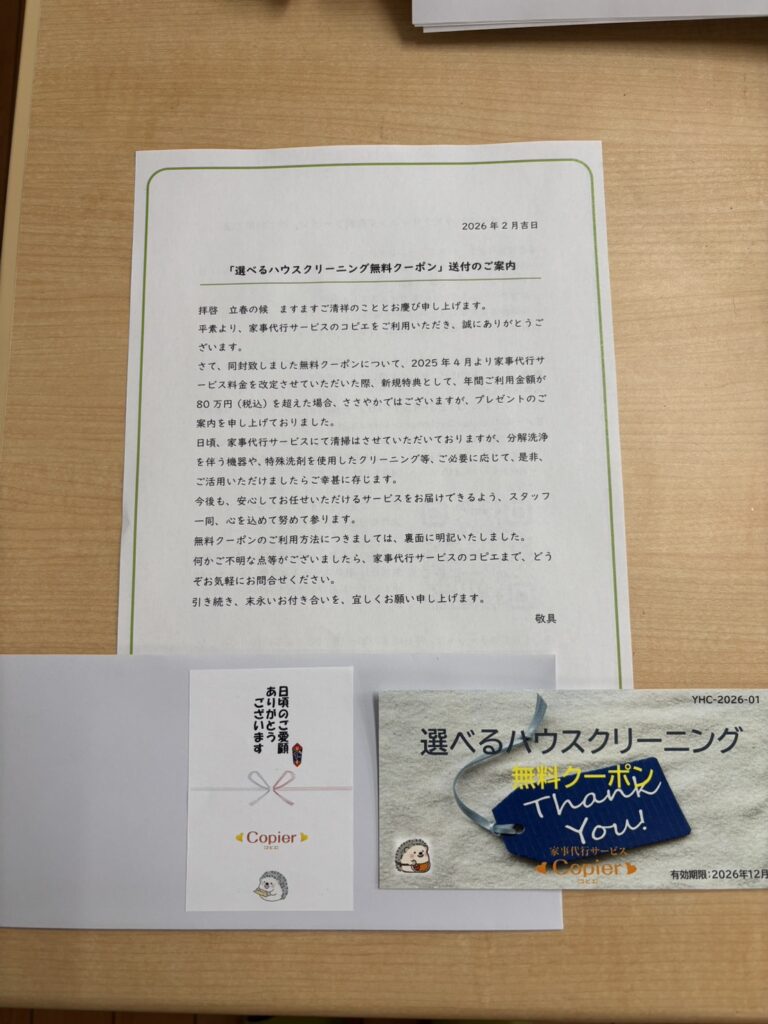 2026年2月吉日
「選べるハウスクリーニング無料クーポン」送付のご案内
拝啓　立春の候　ますますご清祥のこととお慶び申し上げます。
平素より、家事代行サービスのコピエをご利用いただき、誠にありがとうご
ざいます。
さて、同封致しました無料クーポンについて、2025年4月より家事代行サ
ービス料金を改定させていただいた際、新規特典として、年間ご利用金額が
80万円（税込）を超えた場合、ささやかではございますが、プレゼントのご
案内を申し上げておりました。
日頃、家事代行サービスにて清掃はさせていただいておりますが、分解洗浄
を伴う機器や、特殊洗剤を使用したクリーニング等、ご必要に応じて、是非、
ご活用いただけましたらご幸甚に存じます。
今後も、安心してお任せいただけるサービスをお届けできるよう、スタッフ
一同、心を込めて努めて参ります。
無料クーポンのご利用方法につきましては、裏面に明記いたしました。
何かご不明な点等がございましたら、家事代行サービスのコピエまで、どう
ぞお気軽にお問合せください。
引き続き、末永いお付き合いを、宜しくお願い申し上げます。
敬具
日頃のご愛顧
ありがとう
ございます
Copier
コピエ
YHC-2026-01
選べるハウスクリーニング
無料クーポン
Thank
You!
家事代行サービス
Copier
コピエ
有効期限：2026年12月